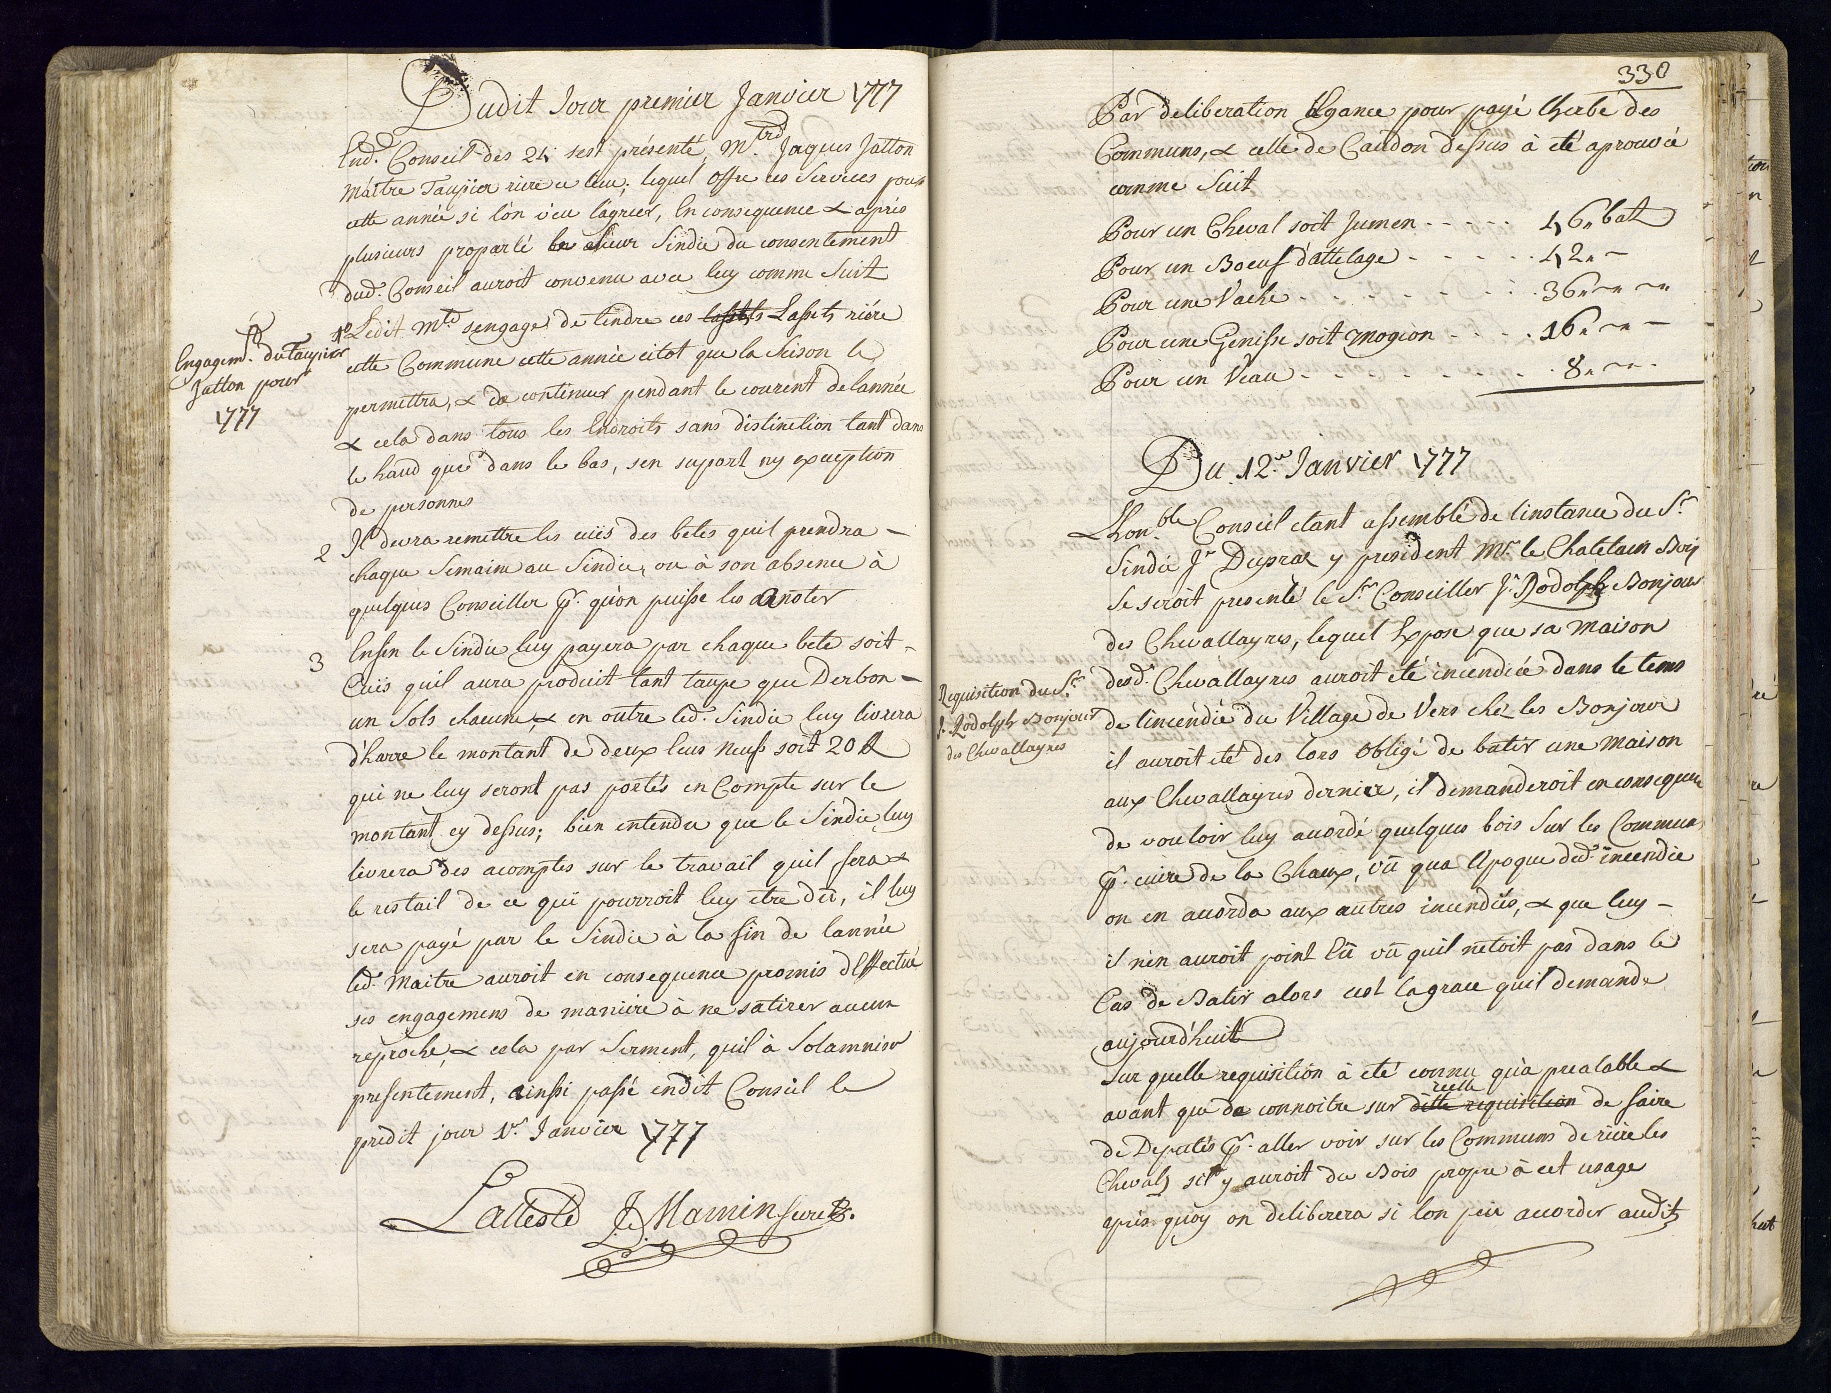 Dudit Jour premier Janvier 1777
End.t Conseil des 24 sest présenté, M.trd Jaques Jatton
Maitre Taupier riere ce lieu; lequel offre ces Services pour
cette année si lon veu lagreer, En consequence & après
plusieurs proparlé le sieur Sindic du consentement
dud.t Conseil auroit convenu avec luy comme Suit
Engagem.t du Taupier
Jatton pour
1777
1° Ledit M.tre sengage de tendre ces Lassets riére
cette Commune cette année citot que la Saison le
permettra, & de continuer pendant le courent de lannée
& cela dans tous les Endroits sans distinction tant dans
le haud que dans le bas, sen suport ny exception
de personnes
2 Il devra remettre les cuiis des betes quil prendra
chaque Semaine au Sindic, ou à son absence à
quelques Conseiller p.r quon puisse les anoter
3 Enfin le Sindic luy payera par chaque bete soit
Cuiis quil aura produit tant taupe que Derbon
un Sols chacune, & en outre led.t Sindic luy livrera
d'harre le montant de deux Ecus neufs soit 20 ll
qui ne luy seront pas portés en Compte sur le
montant cy dessus; bien entendu que le Sindic luy
livrera des acomptes sur le travail quil fera &
le restail de ce qui pourroit luy etre dû, il luy
sera payé par le Sindic à la fin de lannée
led.t Maitre auroit en consequence promis dEffectué
ses engagemens de maniére à ne satirer aucun
reproche, & cela par Serment, quil à Solamnisé
presentement, ainsi passé endit Conseil le
predit jour 1.er Janvier 1777
Lattesté J. Mamin Secret.
330
Par deliberation Egance pour payé Lherbe des
Communs, & celle de Caudon dessus à eté aprouvée
comme Suit
Pour un Cheval soit Jumen - - - - 46„ batz
Pour un Boeuf dattelage - - - - - 42„ -
Pour une Vache - - - - - - - - 36„ - „ - „
Pour une Genisse soit Mogeon - - - - 16„ - „ -
Pour un Veau - - - - - - - - 8„ - - -
Du 12.me Janvier 1777
Lhon.ble Conseil etant assemblé de linstance du S.r
Sindic J.n Dupraz y president Mr. le Chatelain Boij
Se seroit presenté le S.r Conseiller J. Rodolph Bonjour
des Chevallayres, lequel Expose que sa Maison
Requisition du S.r
J. Rodolph Bonjour
des Chevallayres
desd.t Chevallayres auroit eté incendiée dans le tems
de lincendie du Village de Vers chéz les Bonjour
il auroit eté des lors Obligé de batir une Maison
aux Chevallayres derniere, il demanderoit en consequence
de vouloir luy accordé quelques bois Sur les Communs
p.r cuire de la Chaux, vû qua lEpoque dud.t incendie
on en accorda aux autres incendiés, & que luy
il n'en auroit point Eû vû quil nétoit pas dans le
Cas de Batir alors cest la grace quil demande
aujourdhuit
Sur quelle requisition à eté connu qu'a prealable &
avant que de connoitre sur icelle ditte requisition de faire
de Deputés p.r aller voir sur les Communs de riére les
Chevalz sil y auroit du Bois propre à cet usage
aprés quoy on deliberera si lon peu accorder audit